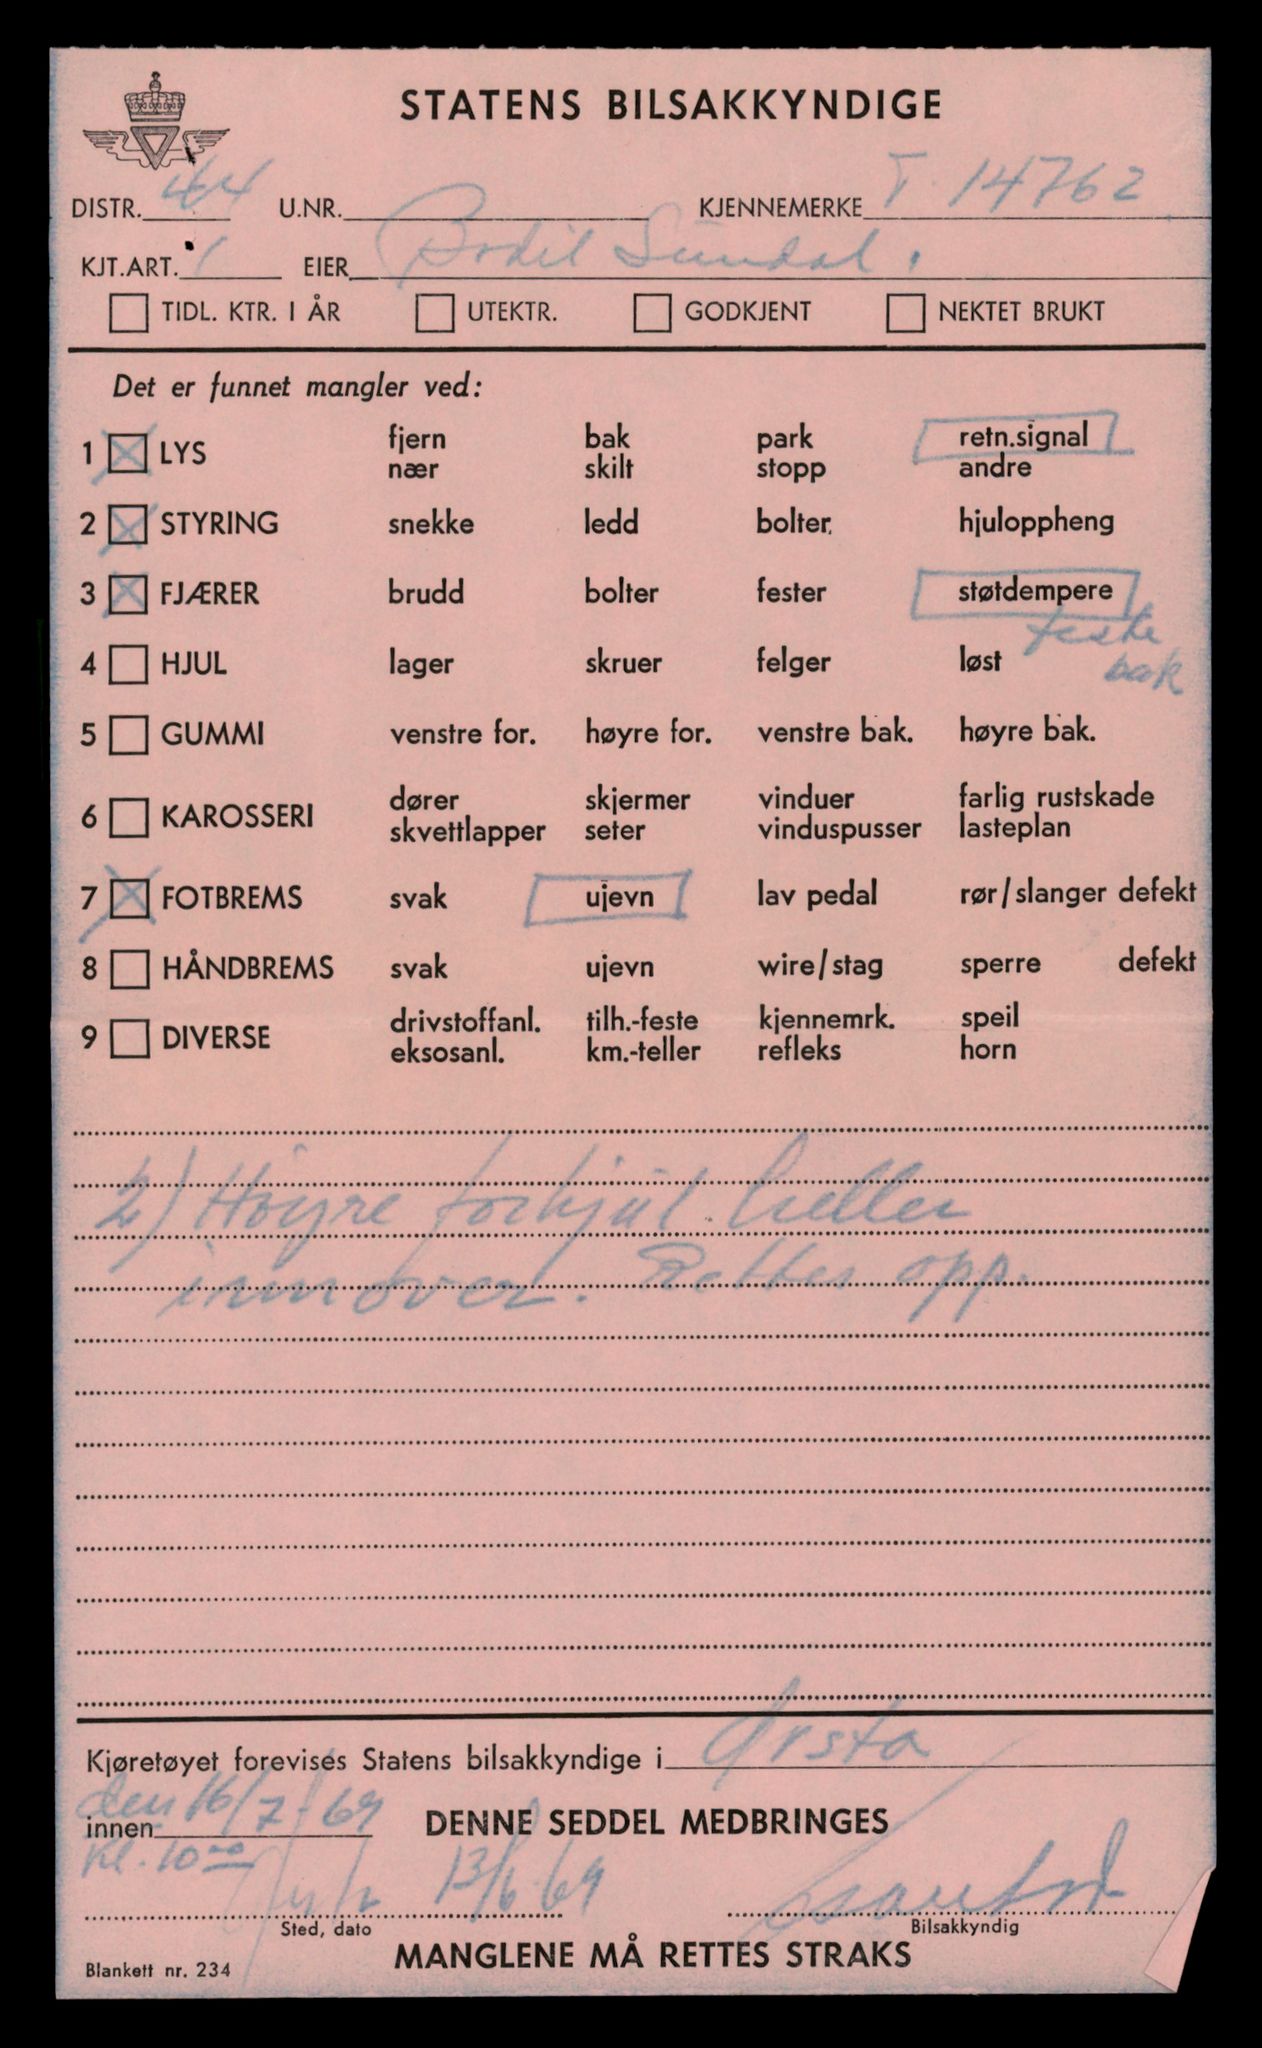 STATENS BILSAKKYNDIGE
DISTR. 44 U.NR. KJENNEMERKE T 14762
KJT.ART. 1 EIER Bodil Sundal.
TIDL. KTR. I ÅR UTEKTR. GODKJENT NEKTET BRUKT
Det er funnet mangler ved:
1 LYS fjern bak park retn.signal
nær skilt stopp andre
2 STYRING snekke ledd bolter. hjuloppheng
3 FJÆRER brudd bolter fester støtdempere
feste
4 HJUL lager skruer felger løst bak
5 GUMMI venstre for. høyre for. venstre bak. høyre bak.
6 KAROSSERI dører skjermer vinduer farlig rustskade
skvettlapper seter vinduspusser lasteplan
7 FOTBREMS svak ujevn lav pedal rør/slanger defekt
8 HÅNDBREMS svak ujevn wire/stag sperre defekt
9 DIVERSE drivstoffanl. tilh.-feste kjennemrk. speil
eksosanl. km.-teller refleks horn
2) Høyre forhjul heller
innover. Rettes opp.
Kjøretøyet forevises Statens bilsakkyndige i Ørsta
den 16/7-69
innen DENNE SEDDEL MEDBRINGES
Kl. 10.00
13/6-69
Sted, dato Bilsakkyndig
MANGLENE MÅ RETTES STRAKS
Blankett nr. 234